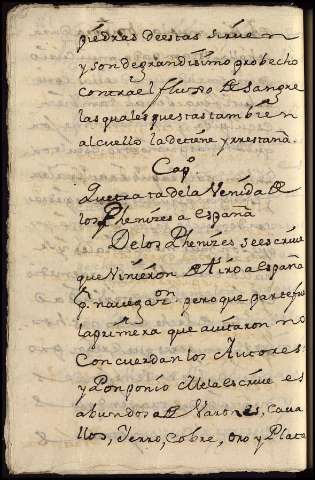 piedras deestas sirven
y son de grandissimo probecho
contra el fluxo de sangre
las quales puestas tambien
al cuello la detiene y rrestaña.
Capº
Que trata de la Venida de
los Phenizes a España
De los Phenizes se escrive
que Vinieron de Tiro a España
pʳ navegaᵒⁿ pero que parte fue
la primera que avitaron no
Concuerdan los Autores
y Ponponio Mela escrive es
abundosa de Varones, Cava
llos, Yerro, Cobre, oro y Plata